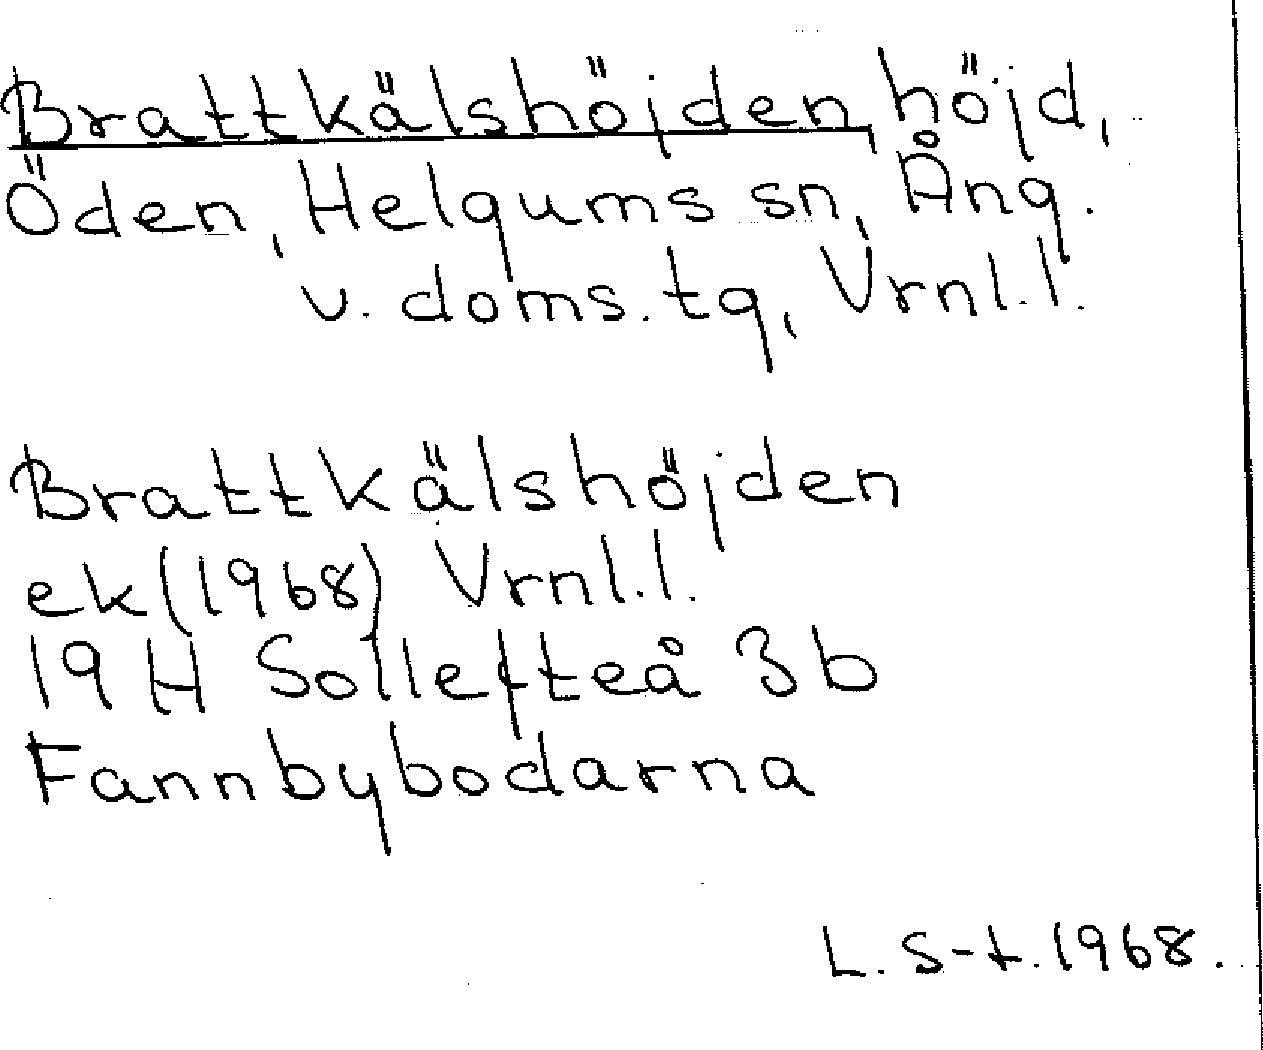 Brattkälshöjden, höjd,
Öden, Helgums sn, Ång.
v. doms. tg, Vrnl. l.
Brattkälshöjden
ek (1968) Vrnl. l.
19 H Sollefteå 3 b
Fannbybodarna
L. S-t. 1968.